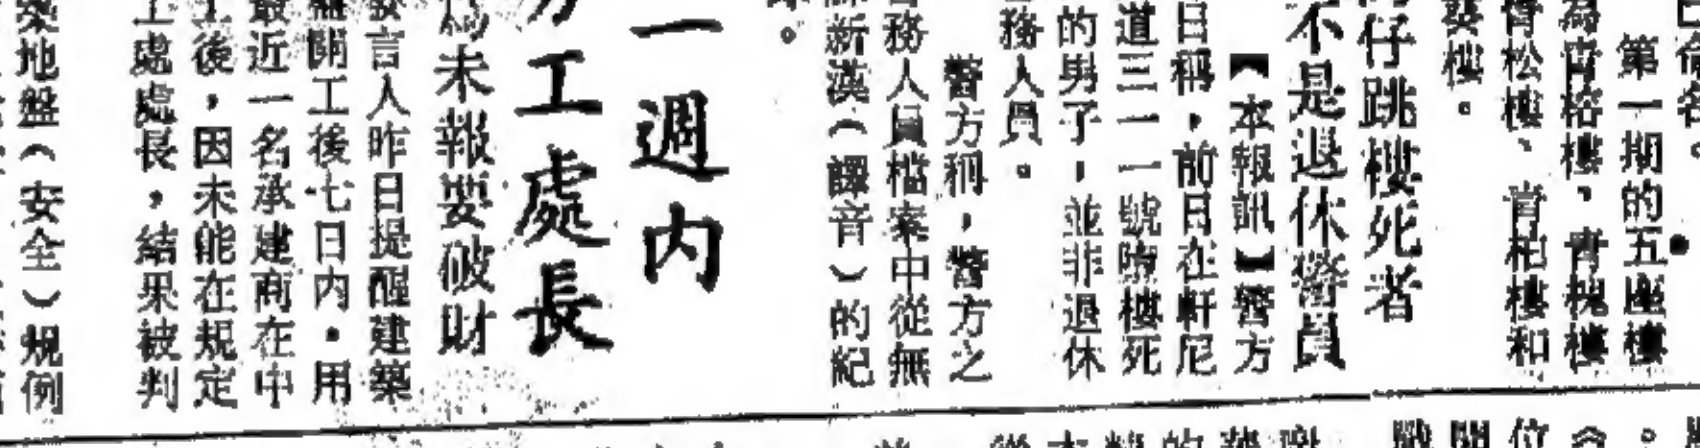 已命名。
第一期的五座樓
為青榕樓、青槐樓
青松樓、青柏樓和
葵樓。
仔跳樓死者
不是退休警員
【本報訊】警方
日稱，前日在軒尼
道三一一號墮樓死
的男子，並非退休
務人員。
警方稱，警方之
務人員檔案中從無
新漢（譯音）的紀
。
一週內
工處長
為未報要破財
言人昨日提醒建築
關工後七日內，用
最近一名承建商在中
工後，因未能在規定
工處處長，結果被判
築地盤（安全）規例